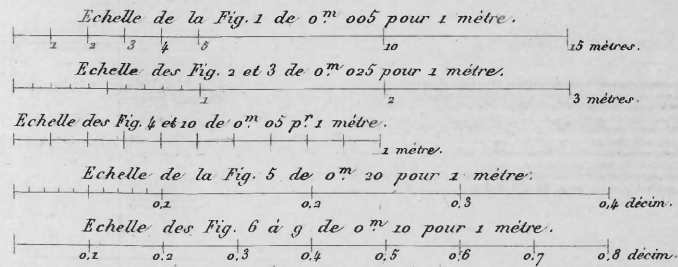 Echelle de la Fig. 1 de 0.m 005 pour 1 métre.
1 2 3 4 5 10 15 métres.
Echelle des Fig. 2 et 3 de 0.m 025 pour 1 métre.
1 2 3 métres.
Echelle des Fig. 4 et 10 de 0.m 05 p.r 1 métre.
1 métre.
Echelle de la Fig. 5 de 0.m 20 pour 1 métre.
0,1 0,2 0,3 0,4 décim.
Echelle des Fig. 6 à 9 de 0.m 10 pour 1 métre.
0,1 0,2 0,3 0,4 0,5 0,6 0,7 0,8 décim.